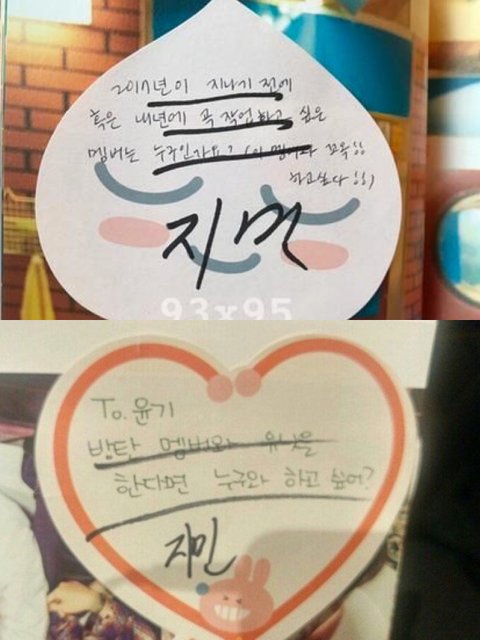 2017년이 지나기 전에
혹은 내년에 곡 작업하고 싶은
멤버는 누구인가요? (이 멤버와 꼬옥!!
하고싶다!!)
지민
93x95
To. 윤기
방탄 멤버와 유닛을
한다면 누구와 하고 싶어?
지민